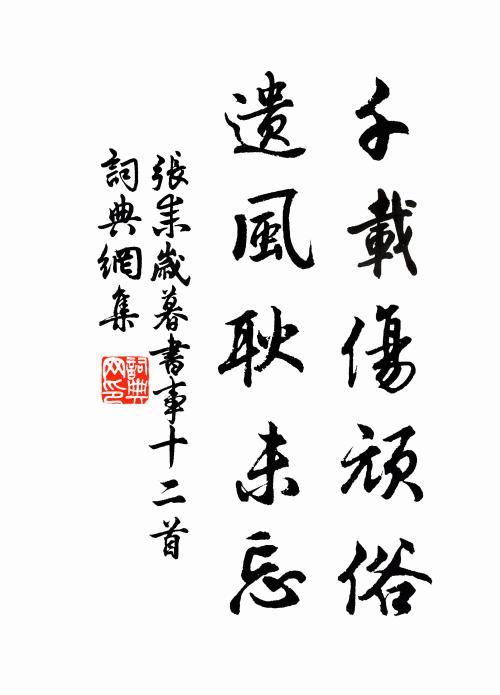 千載傷頑俗
遺風耿未忘
張耒歲暮書事十二首
詞典網集
詞典網印